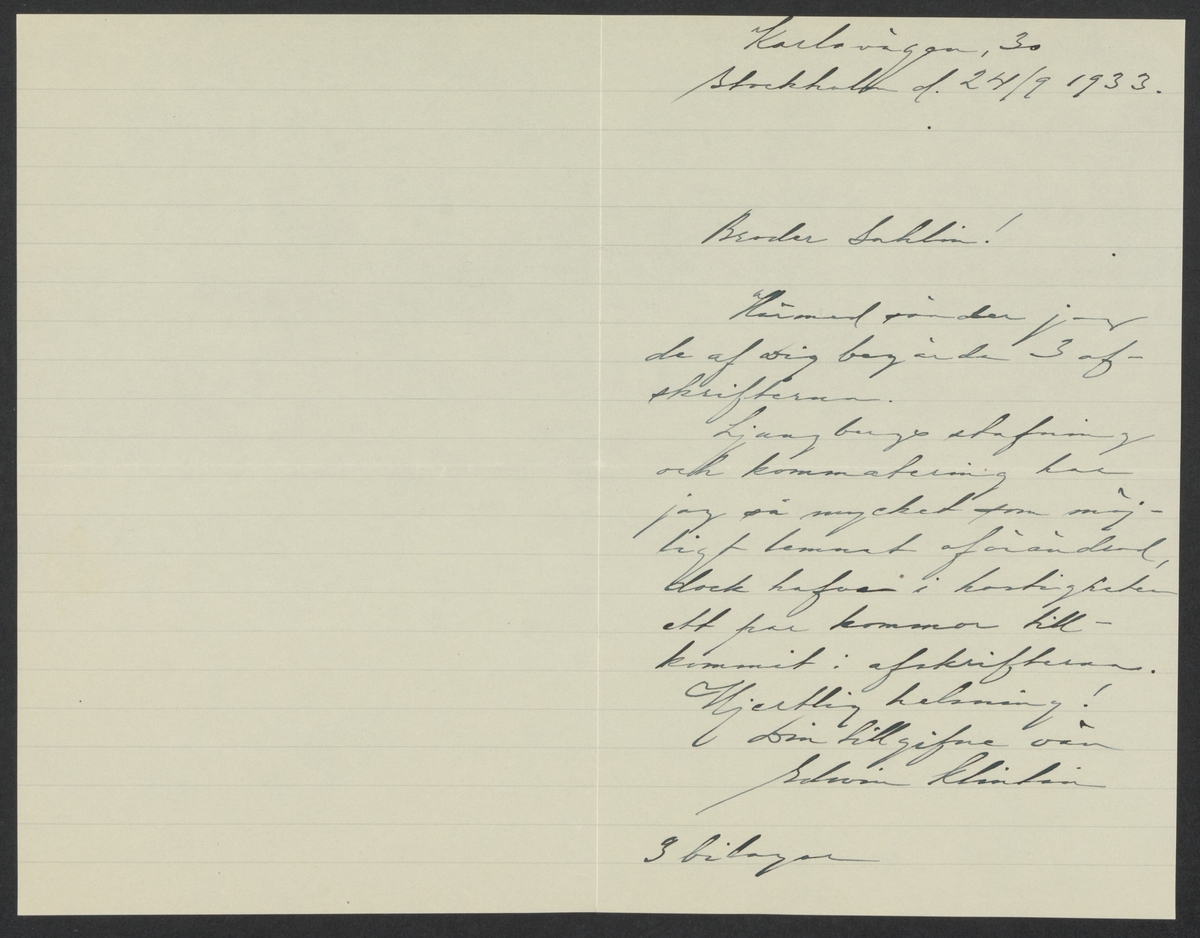 Karlavägen, 30
Stockholm d. 24/9 1933.
Broder Sahlin!
Härmed sänder jag
de af Dig begärda 3 af-
skrifterna.
Ljungbergs stafning
och kommatering har
jag så mycket som möj-
ligt lemnat oförändrad,
dock hafva i hastigheten
ett par kommor till-
kommit i afskrifterna.
Hjertlig helsning!
Din tillgifne vän
Edwin
3 bilagor